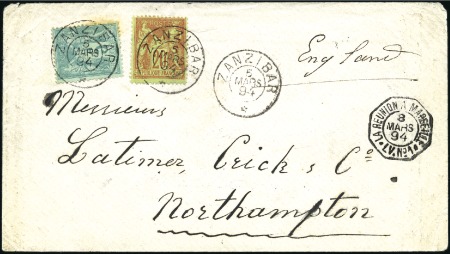 ZANZIBAR
5
MARS
94
ZANZIBAR
ZANZIBAR
5
MARS
94
England
LA REUNION A MARSEILLE
8
MARS
94
L.V. Nº1
Messieurs
Latimer, Crick & Cº
Northampton